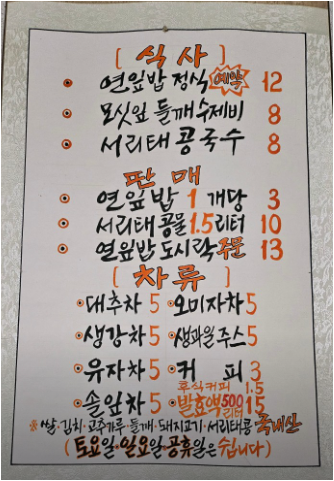 [ 식사 ]
연잎밥 정식 예약 12
모싯잎 들깨수제비 8
서리태 콩국수 8
판매
연잎밥 1개당 3
서리태콩물 1.5리터 10
연잎밥 도시락 주문 13
[ 차류 ]
대추차 5 오미자차 5
생강차 5 생과일주스 5
유자차 5 커피 3
후식커피 1.5
솔잎차 5 발효액 500리터 15
※쌀·김치·고추가루·들깨·돼지고기·서리태콩 국내산
(토요일·일요일·공휴일은 쉽니다)